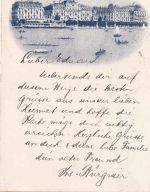 Lieber Eduard.
Uebersende dir auf
diesem Wege die besten
Grüsse aus unserer lieben
Heimat und hoffe die
Karte möge dich richtig
erreichen. Herzliche Grüsse
an dich & deine liebe Familie
dein alter Freund